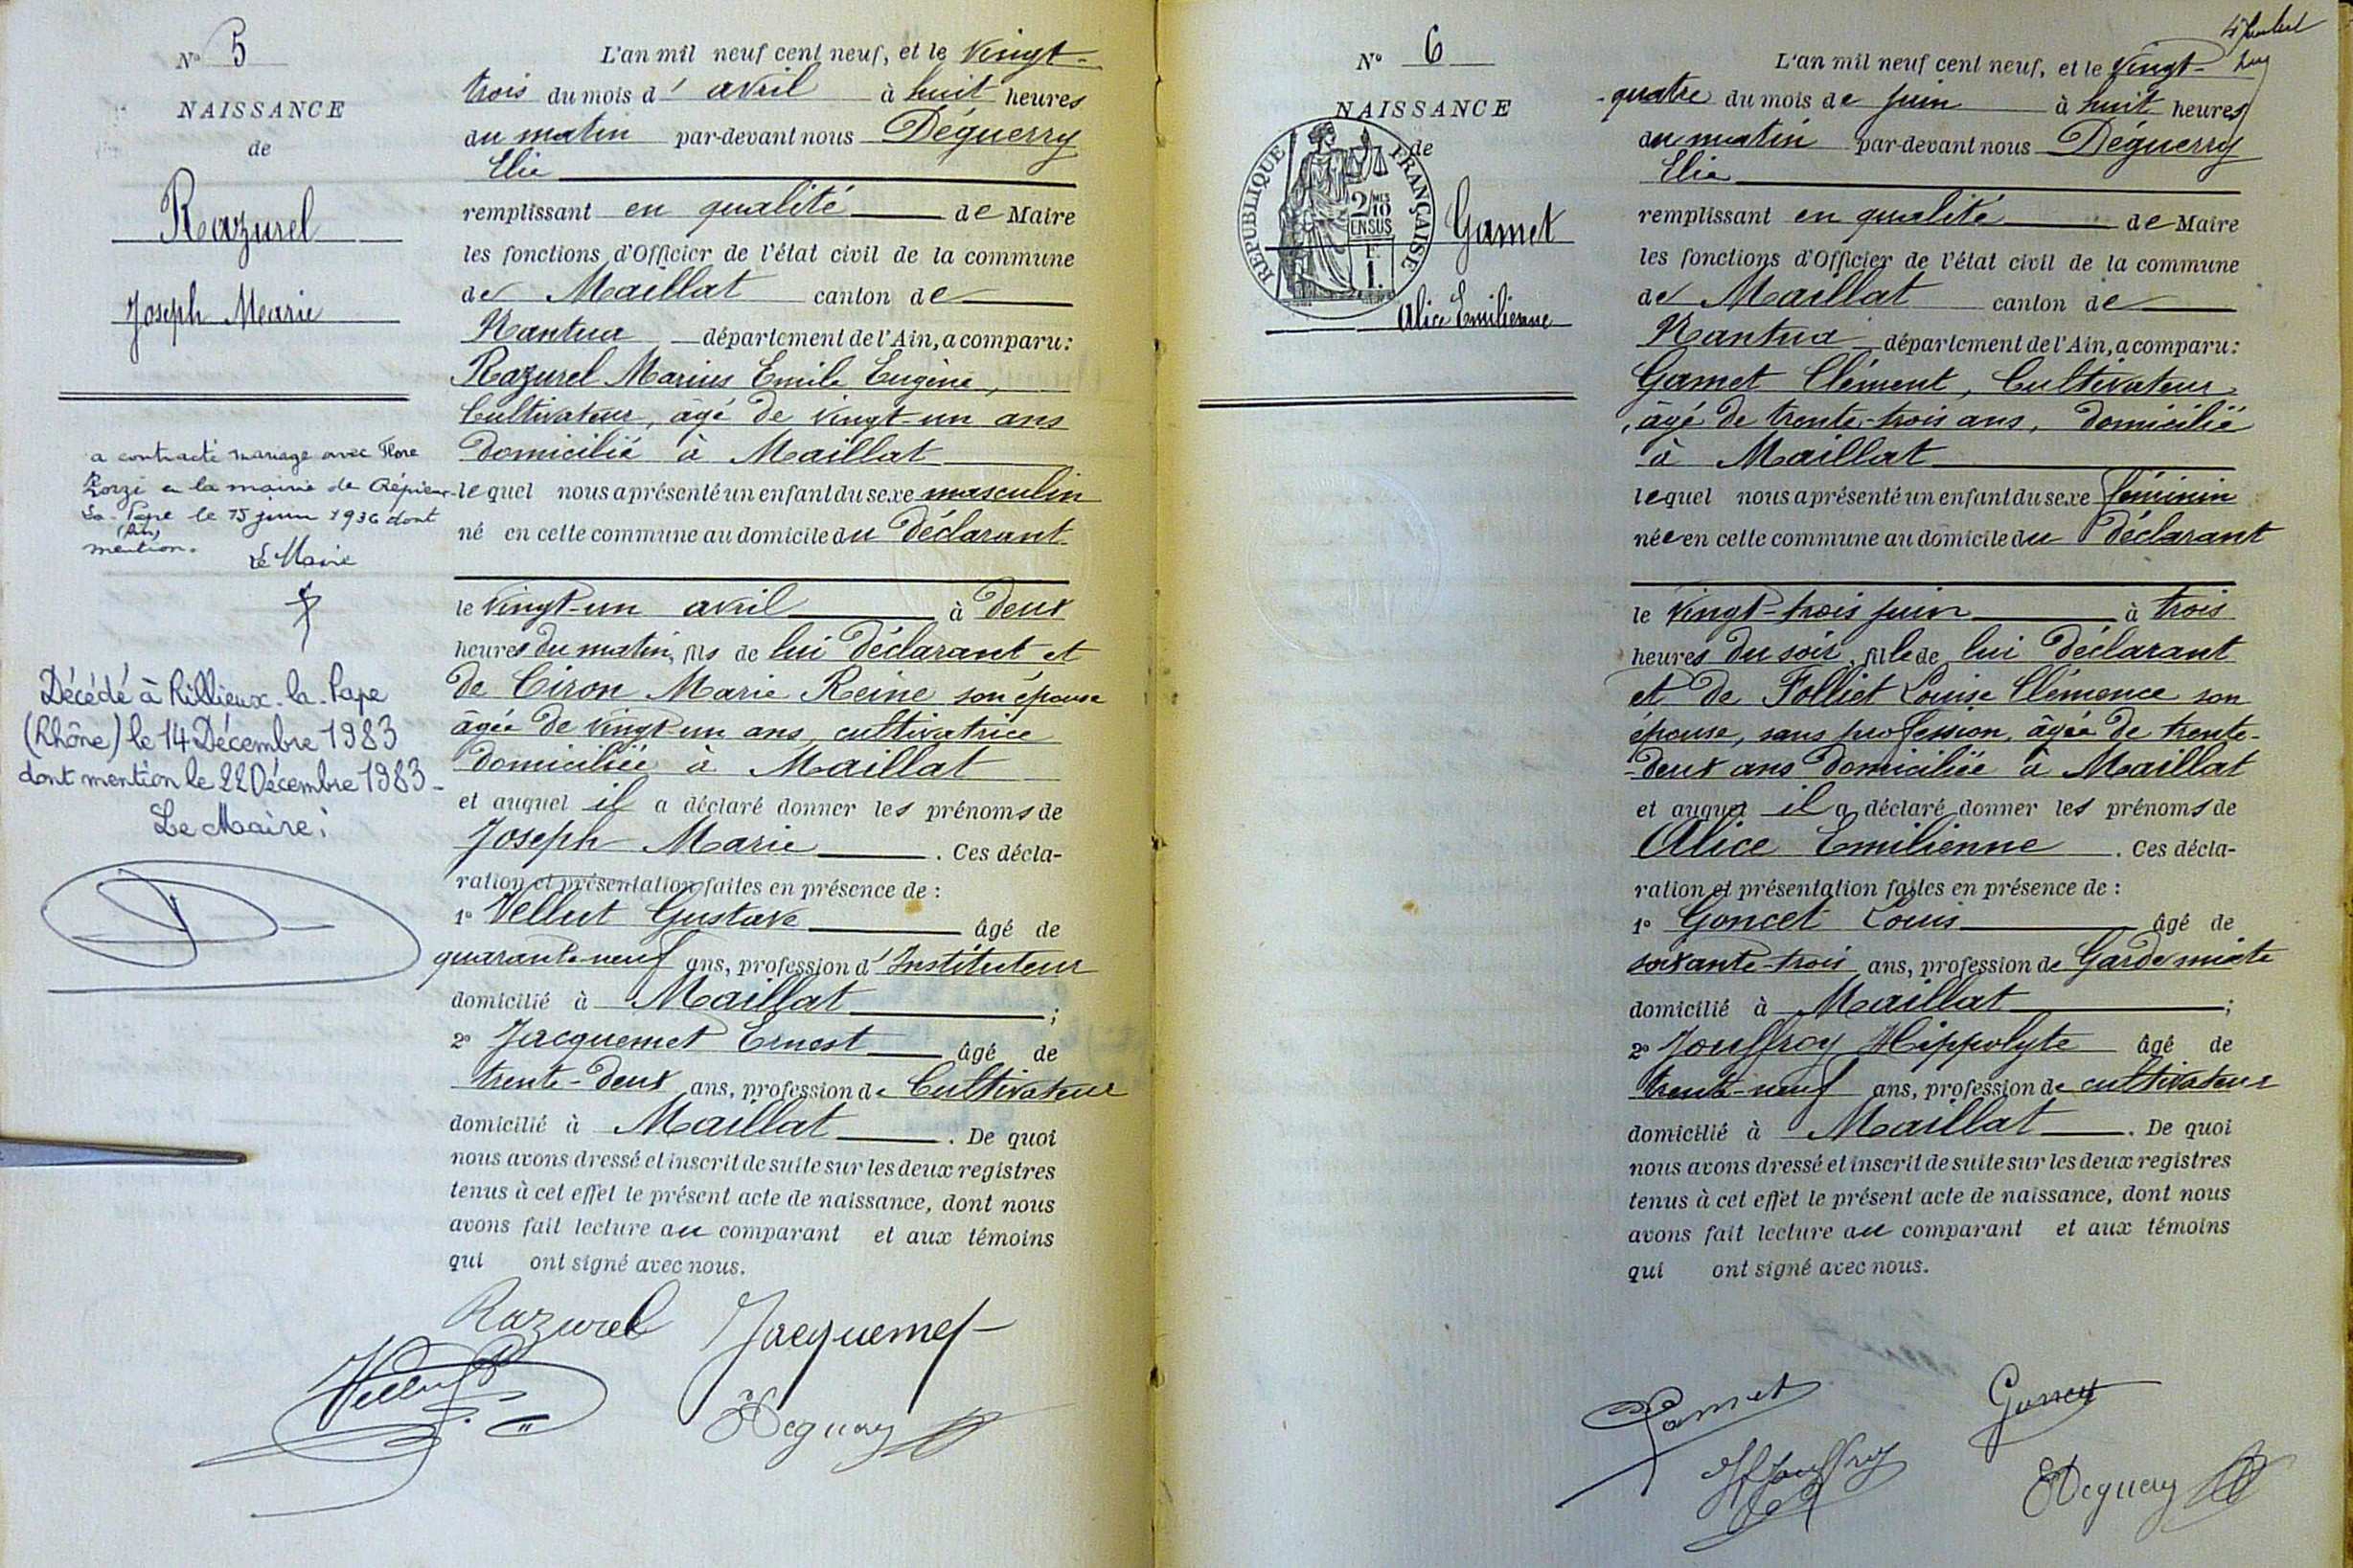 N° 5
NAISSANCE
de
Razurel
Joseph Marie
a contracté mariage avec Flore
Zorzi en la mairie de Crépieux-
La-Pape le 15 juin 1936 dont
(Ain)
mention.
Le Maire
Décédé à Rillieux-la-Pape
(Rhône) le 14 Décembre 1983
dont mention le 22 Décembre 1983 -
Le Maire :
L'an mil neuf cent neuf, et le vingt-
trois du mois d' avril à huit heures
du matin par-devant nous Déguerry
Elie
remplissant en qualité de Maire
les fonctions d'Officier de l'état civil de la commune
de Maillat canton de
Nantua département de l'Ain, a comparu :
Razurel Marius Emile Eugène,
Cultivateur, âgé de vingt-un ans
domicilié à Maillat
lequel nous a présenté un enfant du sexe masculin
né en cette commune au domicile du déclarant
le vingt-un avril à deux
heures du matin, fils de lui déclarant et
de Ciron Marie Reine son épouse
âgée de vingt-un ans, cultivatrice
domiciliée à Maillat
et auquel il a déclaré donner les prénoms de
Joseph Marie . Ces décla-
ration et présentation faites en présence de :
1° Vellut Gustave âgé de
quarante-neuf ans, profession d' Instituteur
domicilié à Maillat ;
2° Jacquemet Ernest âgé de
trente-deux ans, profession de Cultivateur
domicilié à Maillat . De quoi
nous avons dressé et inscrit de suite sur les deux registres
tenus à cet effet le présent acte de naissance, dont nous
avons fait lecture au comparant et aux témoins
qui ont signé avec nous.
Razurel Jacquemet
Vellut
EDeguerry
N° 6
NAISSANCE
de
REPUBLIQUE FRANÇAISE
2/10 MES
EN SUS
F.
1.
Gamet
Alice Emilienne
L'an mil neuf cent neuf, et le vingt-
-quatre du mois de juin à huit heures
du matin par-devant nous Déguerry
Elie
remplissant en qualité de Maire
les fonctions d'Officier de l'état civil de la commune
de Maillat canton de
Nantua département de l'Ain, a comparu :
Gamet Clément, Cultivateur,
âgé de trente-trois ans, domicilié
à Maillat
lequel nous a présenté un enfant du sexe féminin
née en cette commune au domicile du déclarant
le vingt-trois juin à trois
heures du soir, fille de lui déclarant
et de Folliet Louise Clémence son
épouse, sans profession, âgée de trente-
-deux ans domiciliée à Maillat
et auquel il a déclaré donner les prénoms de
Alice Emilienne . Ces décla-
ration et présentation faites en présence de :
1° Goncet Louis âgé de
soixante-trois ans, profession de Garde mixte
domicilié à Maillat ;
2° Jouffroy Hippolyte âgé de
trente-neuf ans, profession de cultivateur
domicilié à Maillat . De quoi
nous avons dressé et inscrit de suite sur les deux registres
tenus à cet effet le présent acte de naissance, dont nous
avons fait lecture au comparant et aux témoins
qui ont signé avec nous.
Gamet Goncet
HJouffroy
EDeguerry